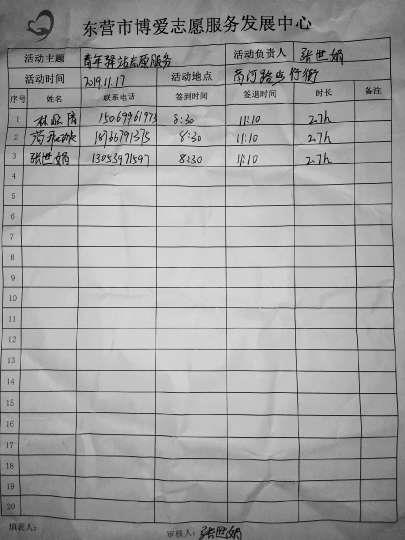 东营市博爱志愿服务发展中心
活动主题 青年驿站志愿服务 活动负责人 张世娟
活动时间 2019.11.17 活动地点 步行街
序号 姓名 联系电话 签到时间 签退时间 时长 备注
1 15069961973 8:30 11:10 2.7h
2 8:30 11:10 2.7h
3 张世娟 13053971597 8:30 11:10 2.7h
4
5
6
7
8
9
10
11
12
13
14
15
16
17
18
19
20
填表人: 审核人: 张世娟